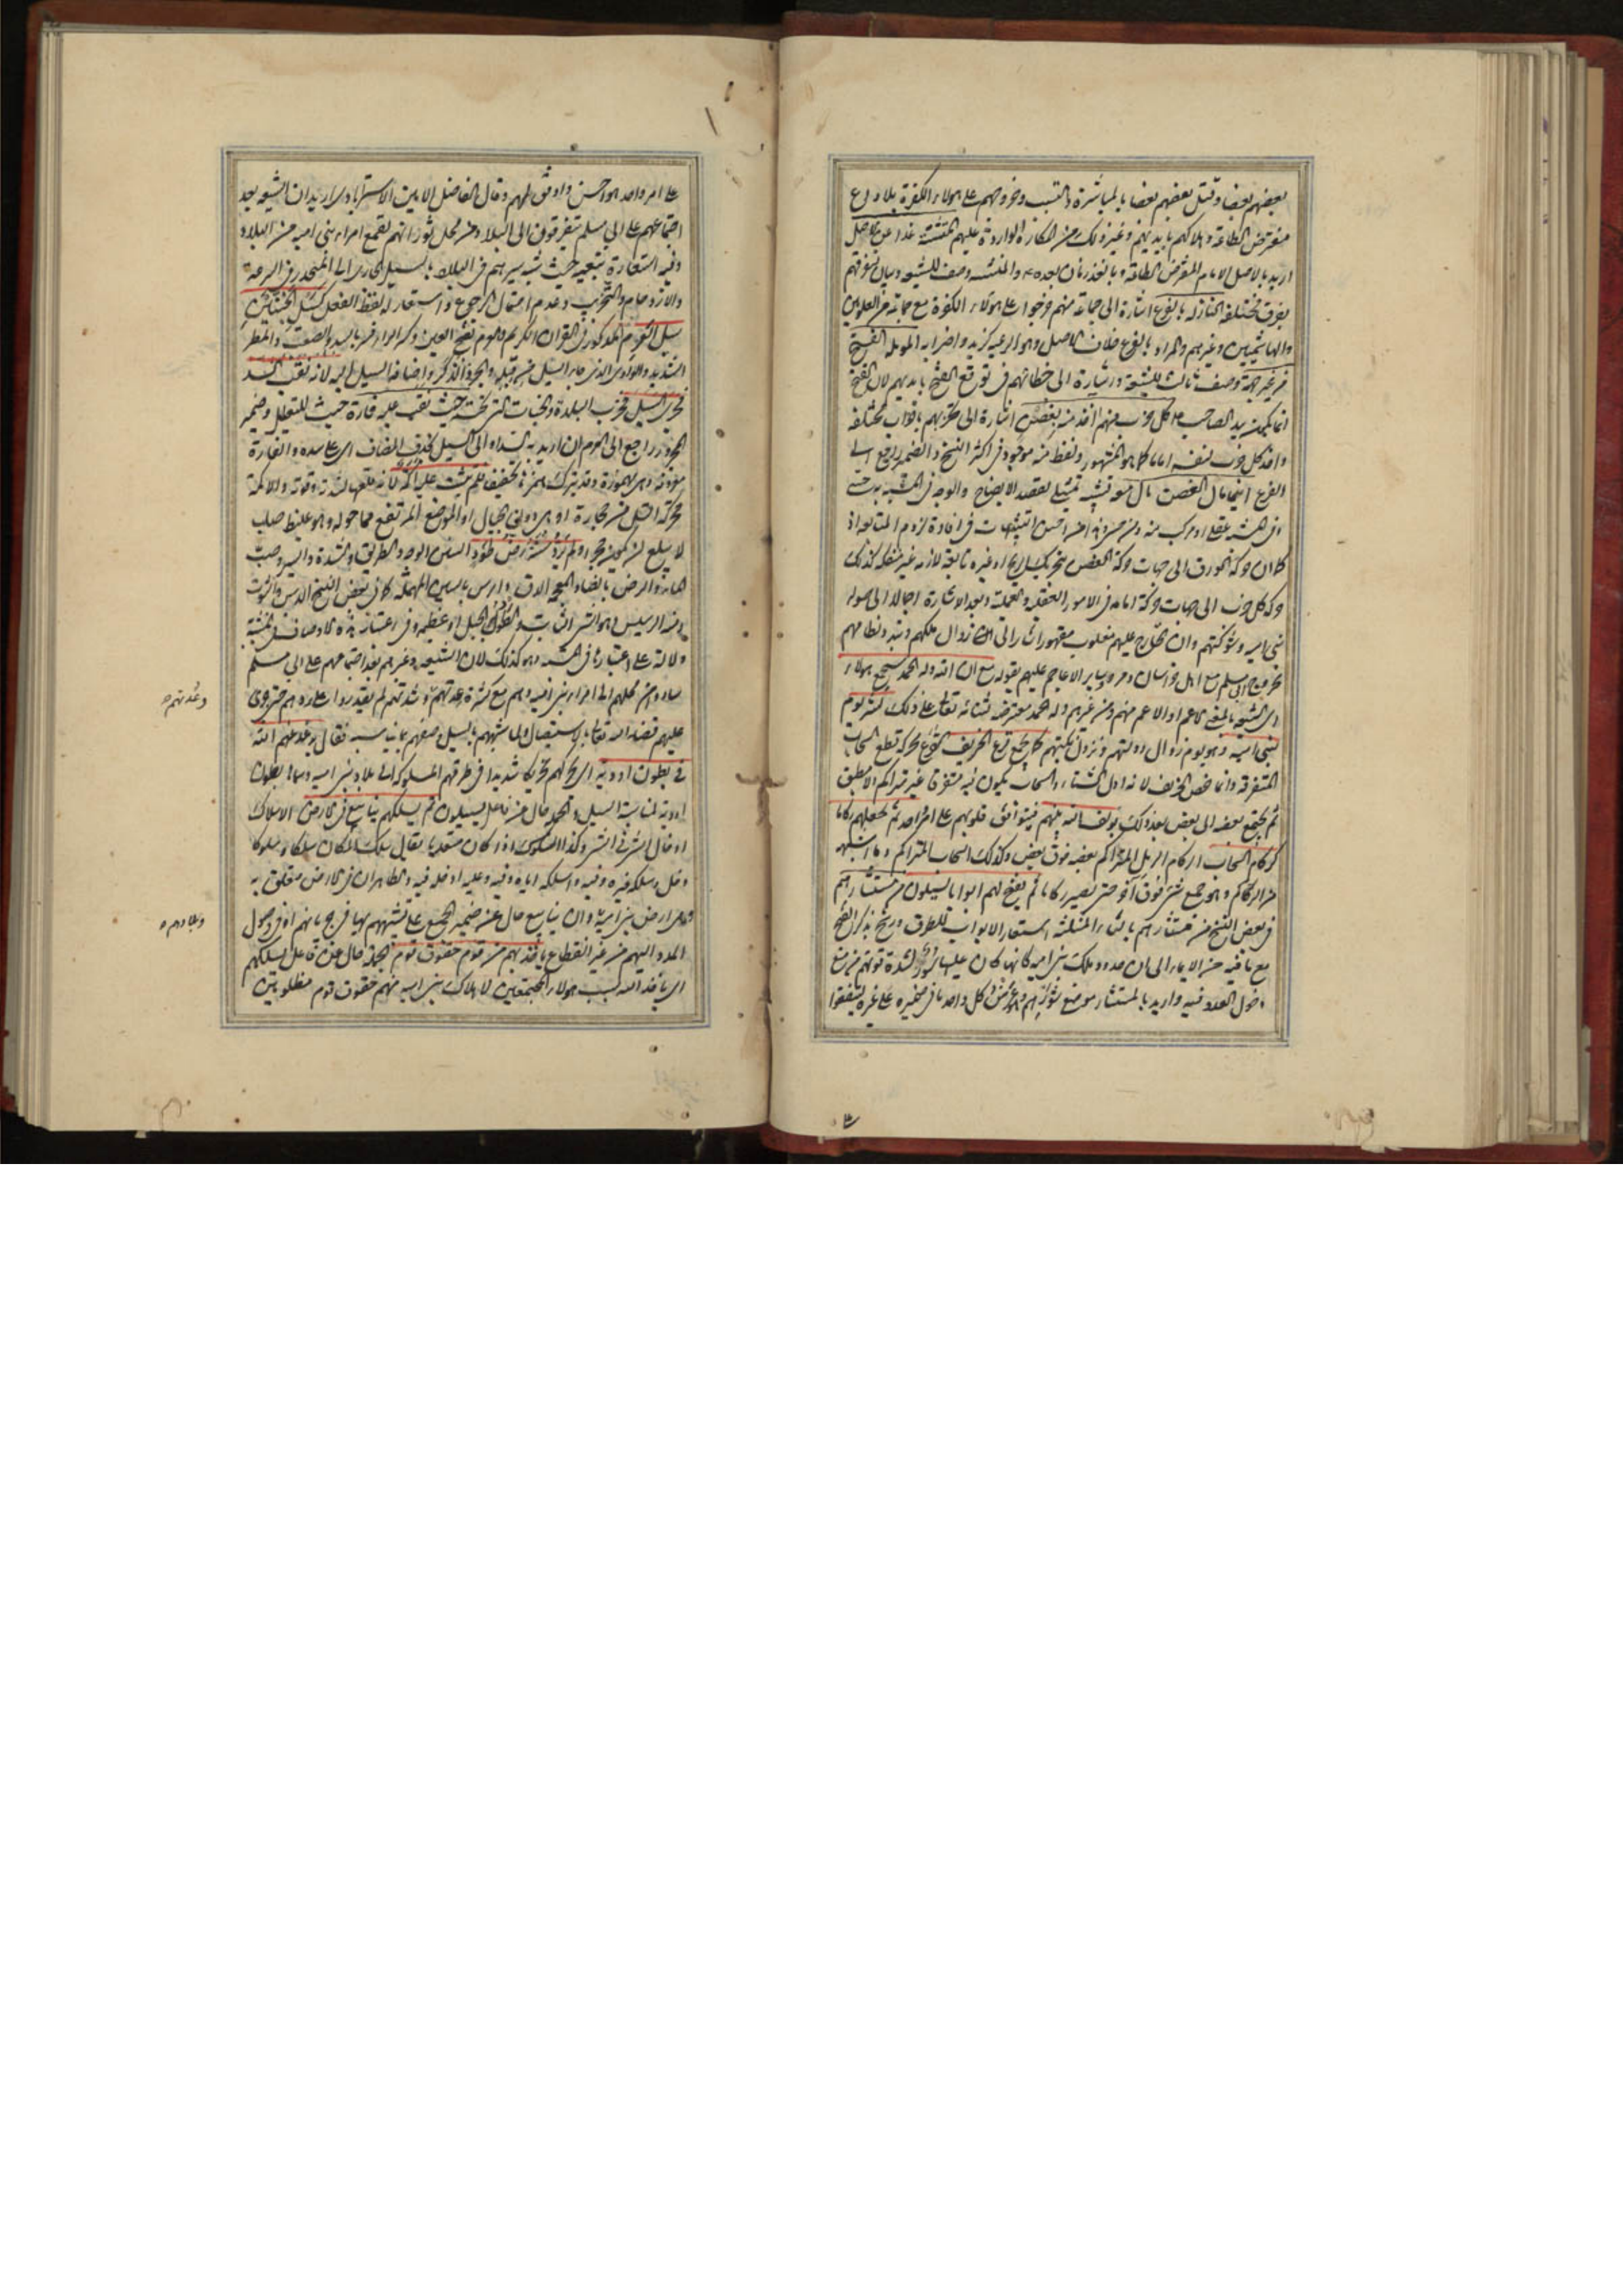 بعضهم بعضا وقتل بعضهم بعضا بالمباشرة والتسبب وخروجهم على هؤلاء الكفرة بلا
مفترض الطاعة وهلاكهم بايديهم وغير ذلك من المكاره الواردة عليهم المتشتتة غدا عن الاصل
اريد بالاصل الامام المفترض الطاعة وبالغد زمان بعده والمتشتتة وصف للشيعة وبيان لتفرقهم
بفرق مختلفة النازلة بالفرع اشارة الى جماعة منهم خرجوا على هؤلاء الكفرة مع جماعة من العلويين
والهاشميين وغيرهم والمراد بالفرع خلاف الاصل وهو الرعية كزيد واضرابه الموملة الفتح
من غير جهته وصف ثالث للشيعة واشارة الى خطائهم في توقع الفتح بايديهم لان الفتح
انما يكون بيد الصاحب كل حزب منهم اخذ منه بغصن اشارة الى تحزبهم باحزاب مختلفة
واخذ كل حزب لنفسه اماما كما هو المشهور ولفظ منه موجود في اكثر النسخ والضمير راجع الى
الفرع اينما مال الغصن مال معه تشبيه تمثيلي لقصد الايضاح والوجه في المشبه به حسي
كما ان حركة الورق الى جهات حركة الغصن بتحريك الريح او غيره تابعة لازمة غير منفكة كذلك
حركة كل حزب الى جهات حركة امامه في الامور العقلية والعملية وبعد الاشارة اجمالا الى صولة
بني امية وشوكتهم وان الخارج عليهم مغلوب مقهور اشار الى زوال ملكهم وتبدد نظامهم
بخروج ابي مسلم مع اهل خراسان ومرو وساير الاعاجم عليهم بقوله مع ان الله وله الحمد سيجمع هؤلاء
اي الشيعة بالمعنى الاعم او الاعم منهم ومن غيرهم وله الحمد معترضة لثنائه تعالى على ذلك لشر يوم
لبني امية وهو يوم زوال دولتهم ونزول نكبتهم كما يجمع قزع الخريف القزع محركة قطع السحاب
المتفرقة وانما خص الخريف لانه اول الشتاء والسحاب يكون فيه متفرقا غير متراكم ولا مطبق
ثم يجتمع بعضه الى بعض بعد ذلك يولف الله بينهم فيتوافق قلوبهم على امر واحد ثم يجعلهم ركاما
كركام السحاب الركام الرمل المتراكم بعضه فوق بعض وكذلك السحاب المتراكم وما اشبهه
من الركم وهو جمع شيء فوق آخر حتى يصير ركاما ثم يفتح لهم ابوابا يسيلون من مستثارهم
في بعض النسخ من مستشارهم بالثاء المثلثة استعار الابواب للطرق ورشح بذكر الفتح
مع ما فيه من الايماء الى ان حدود ملك بني امية كانها كان عليها سور لشدة قوتهم من منع
دخول العدو فيه واريد بالمستثار موضع ثورانهم كل واحد ما في ضميره على غيره ليتفقوا
على امر واحد هو احسن واوفق لهم وقال الفاضل الامين الاسترابادي اريد ان الشيعة بعد
اجتماعهم على ابي مسلم يتفرقون الى البلاد من محل ثورانهم لقمع امراء بني امية من البلاد
وفيه استعارة تبعية حيث شبه سيرهم في البلاد بالسيل الجاري الى المنحدر في السرعة
والازدحام والتخريب وعدم احتمال الرجوع واستعار له لفظ الفعل كسيل الجنتين
سيل العرم المذكور في القران الكريم والعرم بفتح العين وكسر الراء فسر بالسد والصعب والمطر
الشديد والوادي الذي جاء السيل من قبله والجرذ الذكر واضافة السيل اليه لانه نقب السد
فجرى السيل فخرب البلدة والجنات التي تحته حيث نقب عليه فارة حيث للتعليل وضمير
المجرور راجع الى العرم ان اريد به السد او الى السيل بحذف المضاف اي على سده والفارة
مؤنثة وهي مهموزة وقد يترك همزها تخفيفا فلم يثبت عليه اكمة لانه قلعها لشدته وقوته والاكمة
محركة التل من حجارة او هي دون الجبال او الموضع المرتفع مما حوله وهو غليظ صلب
لا يبلغ ان يكون حجرا ولم يرد سننه رض طود السنن الوجه والطريق والشدة والسير وصب
الماء والرض بالضاد المعجمة الدق والرس بالسين المهملة كما في بعض النسخ الدس والثبوت
ومنه الرسيس وهو الشيء الثابت والطود الجبل او عظيمه وفي اعتبار هذه الاوصاف في المشبه به
دلالة على اعتبارها في المشبه وهو كذلك لان الشيعة وغيرهم بعد اجتماعهم على ابي مسلم
ساروا من محلهم الى امراء بني امية وهم مع كثرة عدتهم وشدتهم لم يقدروا على ردهم حتى جرى
عليهم قضاء الله تعالى بالاستيصال ولما شبههم بالسيل وصفهم بما يناسبه فقال يذعذعهم الله
في بطون اودية اي يحركهم تحريكا شديدا في طرقهم المسلوكة الى بلاد بني امية وسماها بطون
اودية لمناسبة السيل والجملة حال من فاعل يسيلون ثم يسلكهم ينابيع في الارض الاسلاك
ادخال الشيء في الشيء وكذا السلوك اذا كان متعديا يقال سلك المكان سلكا وسلوكا
دخل وسلكه غيره وفيه واسلكه اياه وفيه وعليه ادخله فيه والظاهر ان في الارض متعلق به
وهي ارض بني امية وان ينابيع حال عن ضمير الجمع على تشبيههم بها في جريانهم او في وصول
المدد اليهم من غير انقطاع ياخذ بهم من قوم حقوق قوم الجملة حال عن فاعل يسلكهم
اي ياخذ الله بسبب هؤلاء المجتمعين لاهلاك بني امية منهم حقوق قوم مظلومين
وعدتهم